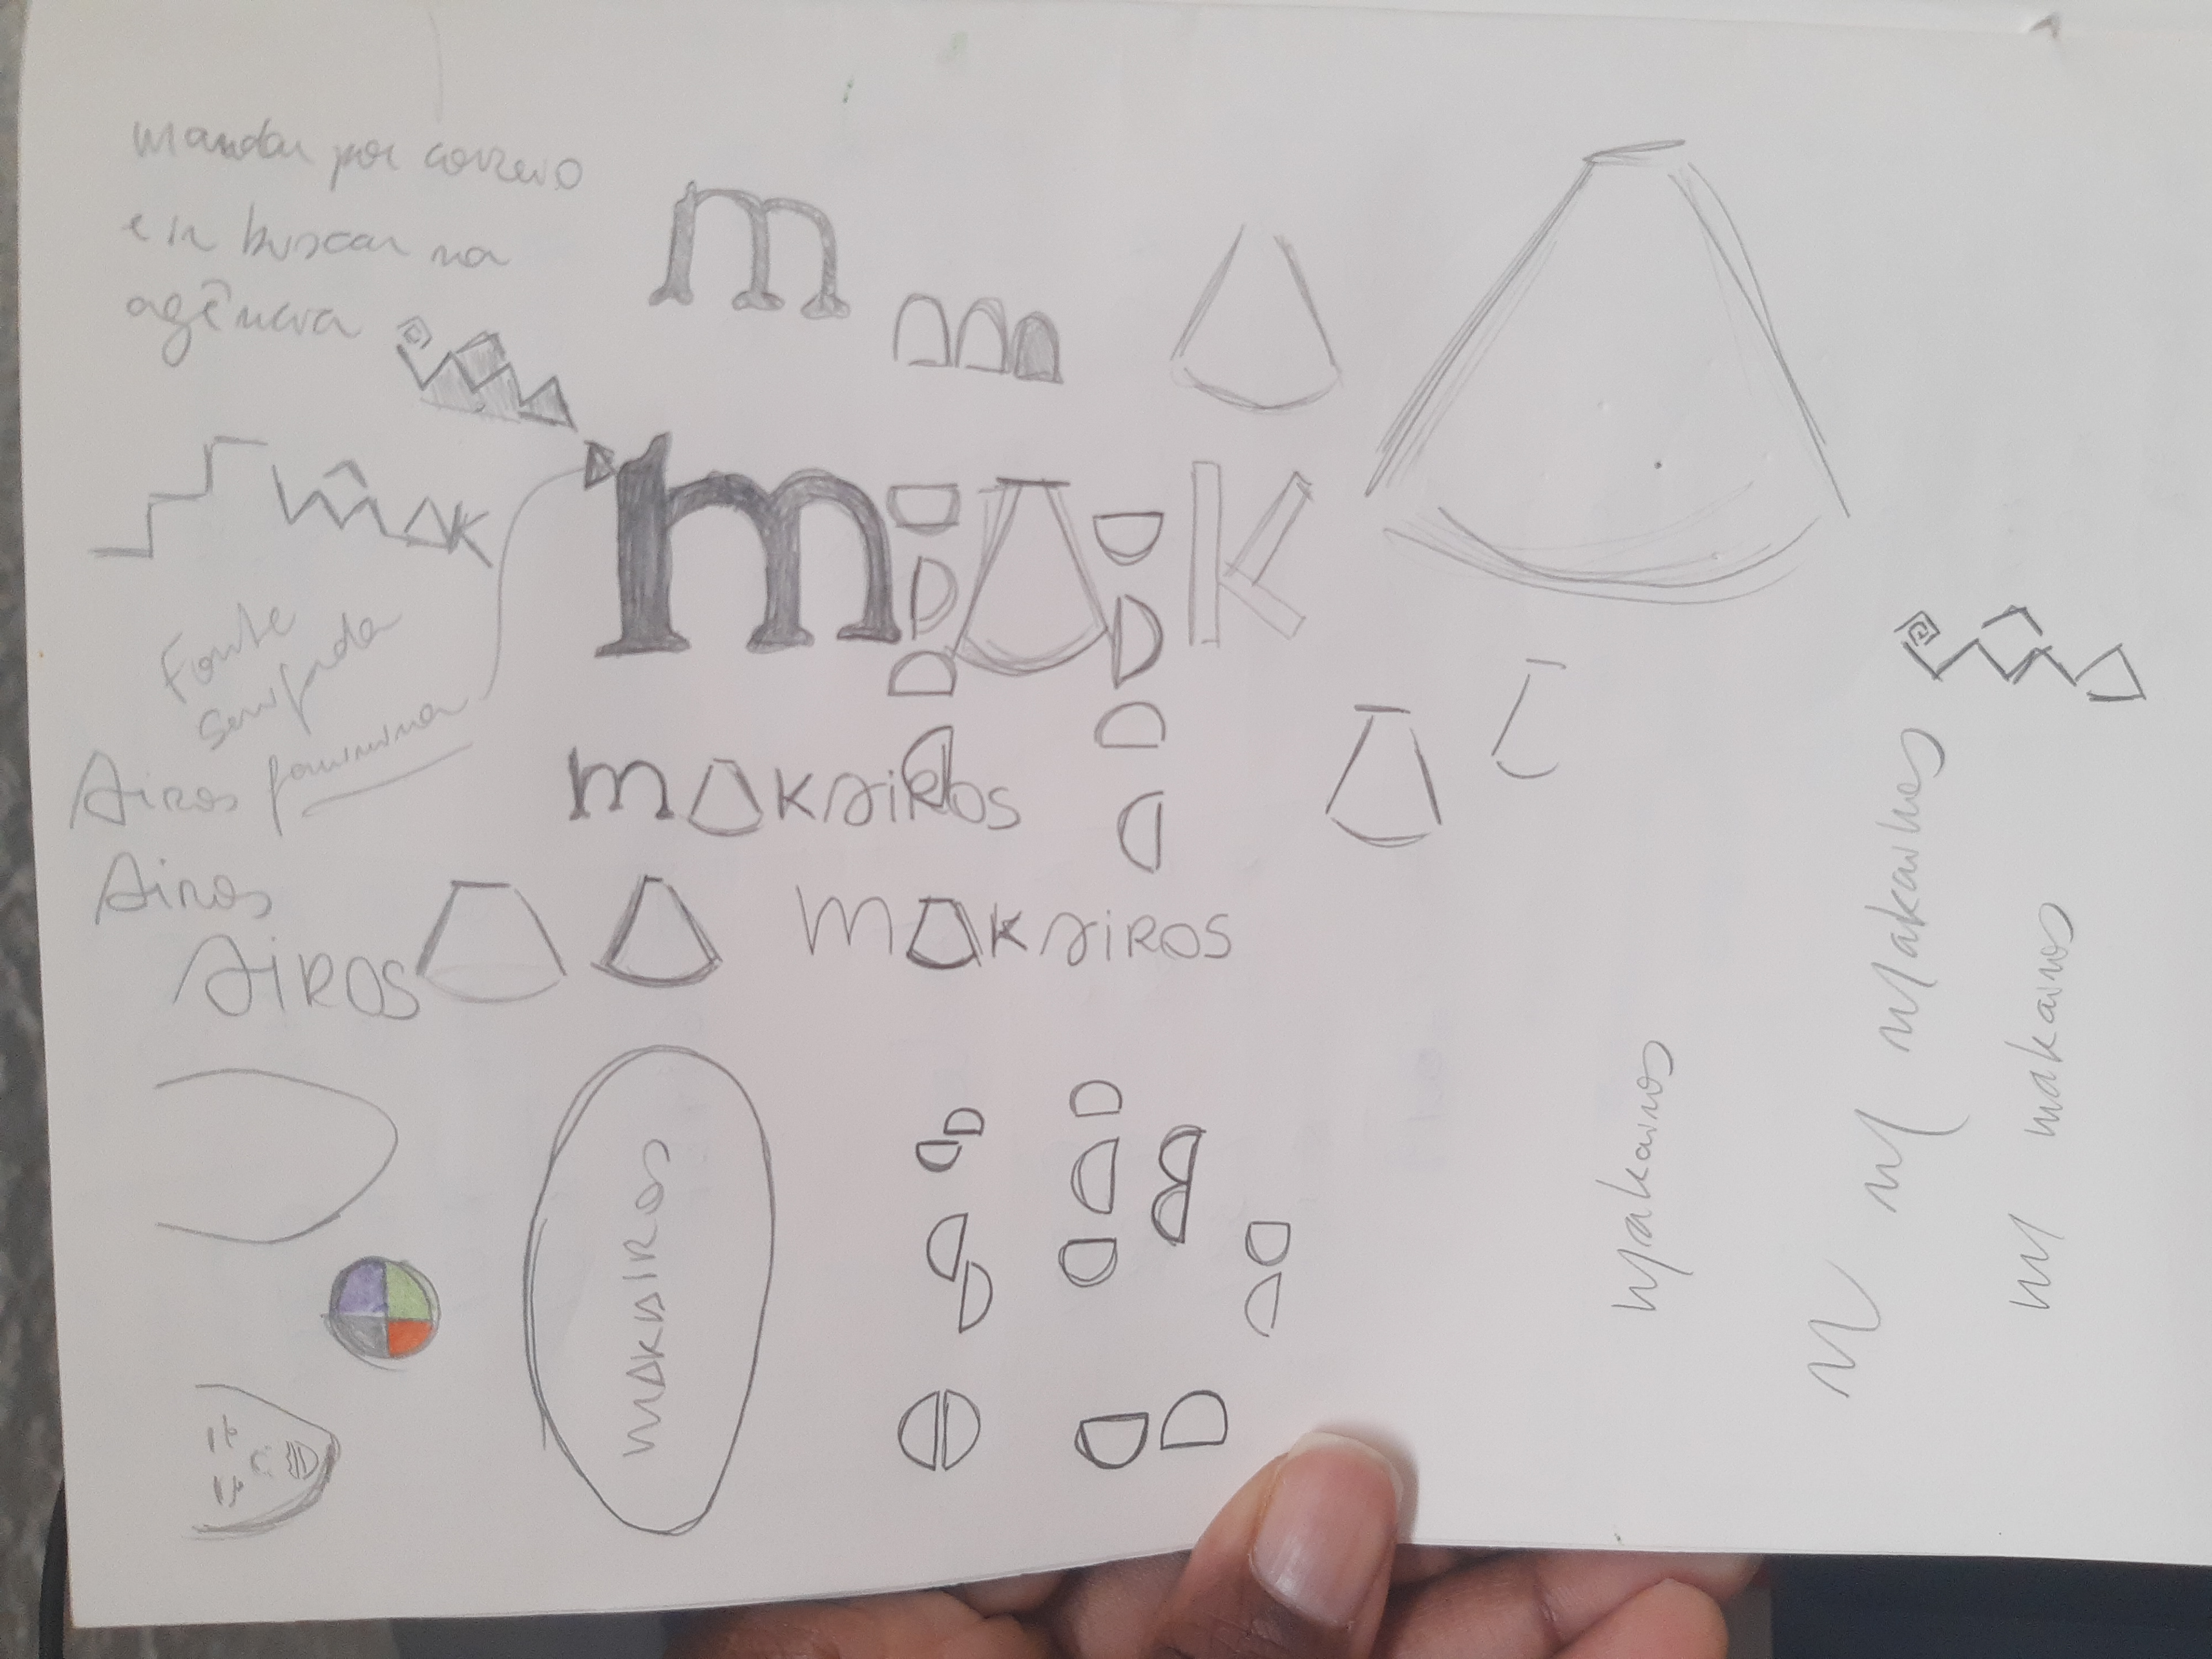 mandar por correio
e ir buscar na
agência
m
m A K
MAK
Fonte
serifada
feminina
Airos
makairos
Airos
AIROS
makairos
MAKAIROS
makairos
m m makairos
m makairos